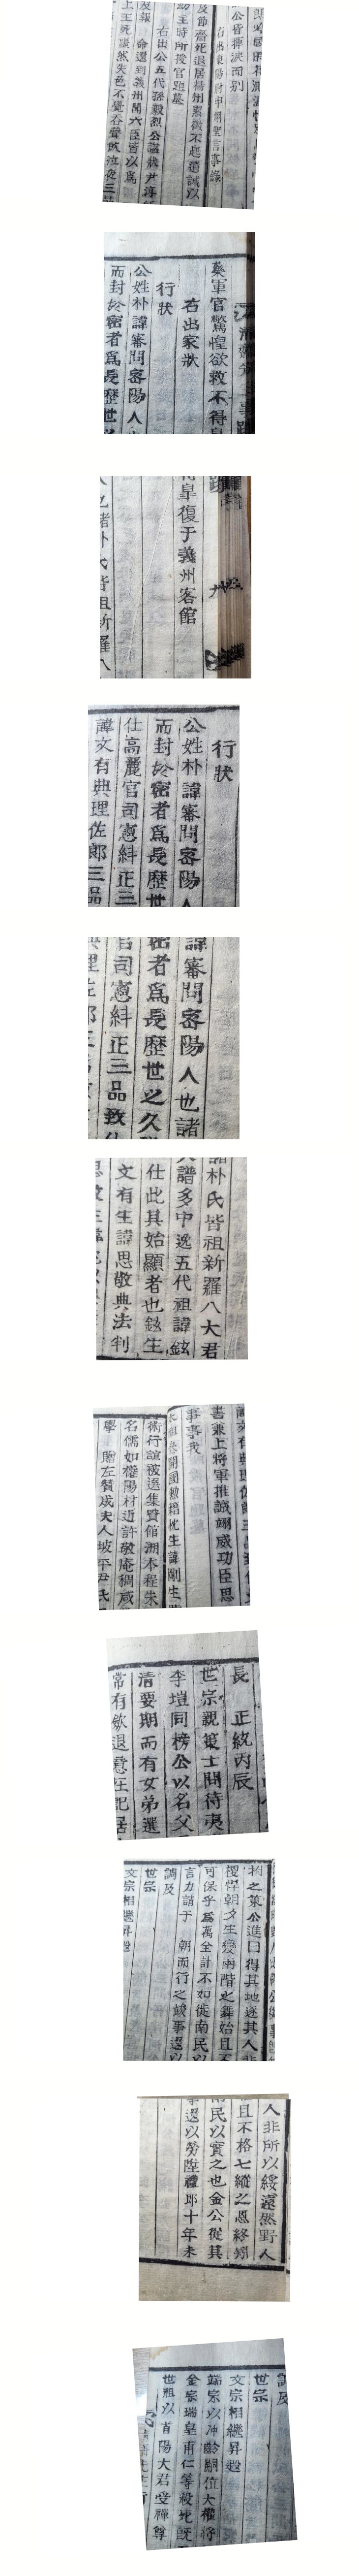 公皆揮淚而別
及節齋死退居楊州累徵不起遺誡以
幼主時所授官題墓
右出公五代孫毅烈公
命還到義州聞六臣皆以爲
上王死謹然失色不覺吞聲飮泣夜三
藥軍官驚惶欲救不得
右出家狀
行狀
公姓朴諱審問密陽人
而封於密者爲長歷世
得皐復于義州客館
人也諸朴氏皆祖新羅八
行狀
公姓朴諱審問密陽人
而封於密者爲長歷世
仕高麗官司憲糾正三
諱文有典理佐郎三品
諱審問密陽人也諸
密者爲長歷世之久
官司憲糾正三品致仕
典理佐郎三
諸朴氏皆祖新羅八大君
譜多中逸五代祖諱鉉
仕此其始顯者也鉉生
文有生諱思敬典法判
書兼上將軍推誠翊威功臣思
術行誼被選集賢館溯本程朱
名儒如權陽村近許敬庵稠咸
學 贈左贊成夫人坡平尹氏
長 正統丙辰
世宗親策士問待夷
李塏同榜公以名父
淸要期而有女弟選
常有斂退意在記居
搠之策公進曰得其地逐其人非
稷悍朝夕生變兩階之舞始且不
可保乎爲萬全計不如徙南民以
言力請于 朝而行之竣事還以
調及
世宗
文宗相繼昇遐
人非所以綏遠然野人
且不格七縱之恩終
南民以實之也金公從其
事還以勞陞禮郎十年未
調及
世宗
文宗相繼昇遐
端宗以冲齡嗣位大權將
金宗瑞皇甫仁等殺死旣
世祖以首陽大君受禪尊